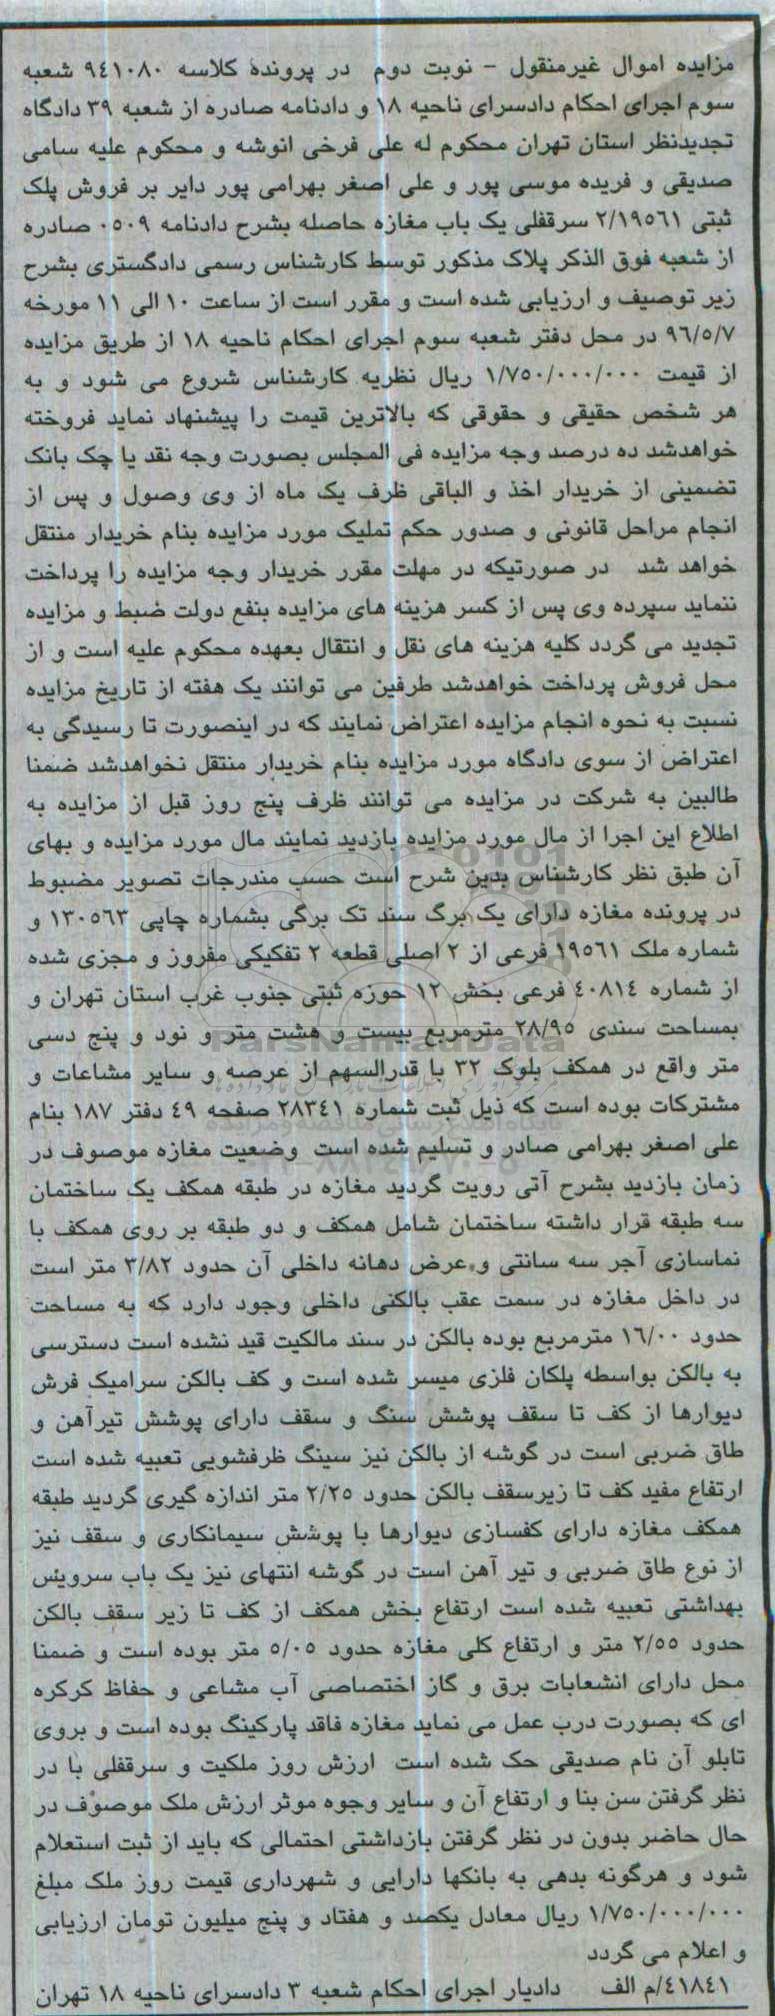 مزایده اموال غیرمنقول - نوبت دوم در پرونده کلاسه ۹٤۱۰۸۰ شعبه
سوم اجرای احکام دادسرای ناحیه ۱۸ و دادنامه صادره از شعبه ۳۹ دادگاه
تجدیدنظر استان تهران محکوم له علی فرخی انوشه و محکوم علیه سامی
صدیقی و فریده موسی پور و علی اصغر بهرامی پور دایر بر فروش پلک
ثبتی ۲/۱۹٥٦۱ سرقفلی یک باب مغازه حاصله بشرح دادنامه ۰٥۰۹ صادره
از شعبه فوق الذکر پلاک مذکور توسط کارشناس رسمی دادگستری بشرح
زیر توصیف و ارزیابی شده است و مقرر است از ساعت ۱۰ الی ۱۱ مورخه
۹٦/٥/۷ در محل دفتر شعبه سوم اجرای احکام ناحیه ۱۸ از طریق مزایده
از قیمت ۱/۷٥۰/۰۰۰/۰۰۰ ریال نظریه کارشناس شروع می شود و به
هر شخص حقیقی و حقوقی که بالاترین قیمت را پیشنهاد نماید فروخته
خواهدشد ده درصد وجه مزایده فی المجلس بصورت وجه نقد یا چک بانک
تضمینی از خریدار اخذ و الباقی ظرف یک ماه از وی وصول و پس از
انجام مراحل قانونی و صدور حکم تملیک مورد مزایده بنام خریدار منتقل
خواهد شد در صورتیکه در مهلت مقرر خریدار وجه مزایده را پرداخت
ننماید سپرده وی پس از کسر هزینه های مزایده بنفع دولت ضبط و مزایده
تجدید می گردد کلیه هزینه های نقل و انتقال بعهده محکوم علیه است و از
محل فروش پرداخت خواهدشد طرفین می توانند یک هفته از تاریخ مزایده
نسبت به نحوه انجام مزایده اعتراض نمایند که در اینصورت تا رسیدگی به
اعتراض از سوی دادگاه مورد مزایده بنام خریدار منتقل نخواهدشد ضمنا
طالبین به شرکت در مزایده می توانند ظرف پنج روز قبل از مزایده به
اطلاع این اجرا از مال مورد مزایده بازدید نمایند مال مورد مزایده و بهای
آن طبق نظر کارشناس بدین شرح است حسب مندرجات تصویر مضبوط
در پرونده مغازه دارای یک برگ سند تک برگی بشماره چاپی ۱۳۰٥٦۳ و
شماره ملک ۱۹٥٦۱ فرعی از ۲ اصلی قطعه ۲ تفکیکی مفروز و مجزی شده
از شماره ٤۰۸۱٤ فرعی بخش ۱۲ حوزه ثبتی جنوب غرب استان تهران و
بمساحت سندی ۲۸/۹٥ مترمربع بیست و هشت متر و نود و پنج دسی
متر واقع در همکف بلوک ۳۲ با قدرالسهم از عرصه و سایر مشاعات و
مشترکات بوده است که ذیل ثبت شماره ۲۸۳٤۱ صفحه ٤۹ دفتر ۱۸۷ بنام
علی اصغر بهرامی صادر و تسلیم شده است وضعیت مغازه موصوف در
زمان بازدید بشرح آتی رویت گردید مغازه در طبقه همکف یک ساختمان
سه طبقه قرار داشته ساختمان شامل همکف و دو طبقه بر روی همکف با
نماسازی آجر سه سانتی و عرض دهانه داخلی آن حدود ۳/۸۲ متر است
در داخل مغازه در سمت عقب بالکنی داخلی وجود دارد که به مساحت
حدود ۱٦/۰۰ مترمربع بوده بالکن در سند مالکیت قید نشده است دسترسی
به بالکن بواسطه پلکان فلزی میسر شده است و کف بالکن سرامیک فرش
دیوارها از کف تا سقف پوشش سنگ و سقف دارای پوشش تیرآهن و
طاق ضربی است در گوشه از بالکن نیز سینگ ظرفشویی تعبیه شده است
ارتفاع مفید کف تا زیرسقف بالکن حدود ۲/۲٥ متر اندازه گیری گردید طبقه
همکف مغازه دارای کفسازی دیوارها با پوشش سیمانکاری و سقف نیز
از نوع طاق ضربی و تیر آهن است در گوشه انتهای نیز یک باب سرویس
بهداشتی تعبیه شده است ارتفاع بخش همکف از کف تا زیر سقف بالکن
حدود ۲/٥٥ متر و ارتفاع کلی مغازه حدود ٥/۰٥ متر بوده است و ضمنا
محل دارای انشعابات برق و گاز اختصاصی آب مشاعی و حفاظ کرکره
ای که بصورت درب عمل می نماید مغازه فاقد پارکینگ بوده است و بروی
تابلو آن نام صدیقی حک شده است ارزش روز ملکیت و سرقفلی با در
نظر گرفتن سن بنا و ارتفاع آن و سایر وجوه موثر ارزش ملک موصوف در
حال حاضر بدون در نظر گرفتن بازداشتی احتمالی که باید از ثبت استعلام
شود و هرگونه بدهی به بانکها دارایی و شهرداری قیمت روز ملک مبلغ
۱/۷٥۰/۰۰۰/۰۰۰ ریال معادل یکصد و هفتاد و پنج میلیون تومان ارزیابی
و اعلام می گردد
٤۱۸٤۱/م الف دادیار اجرای احکام شعبه ۳ دادسرای ناحیه ۱۸ تهران
ParsNamadData